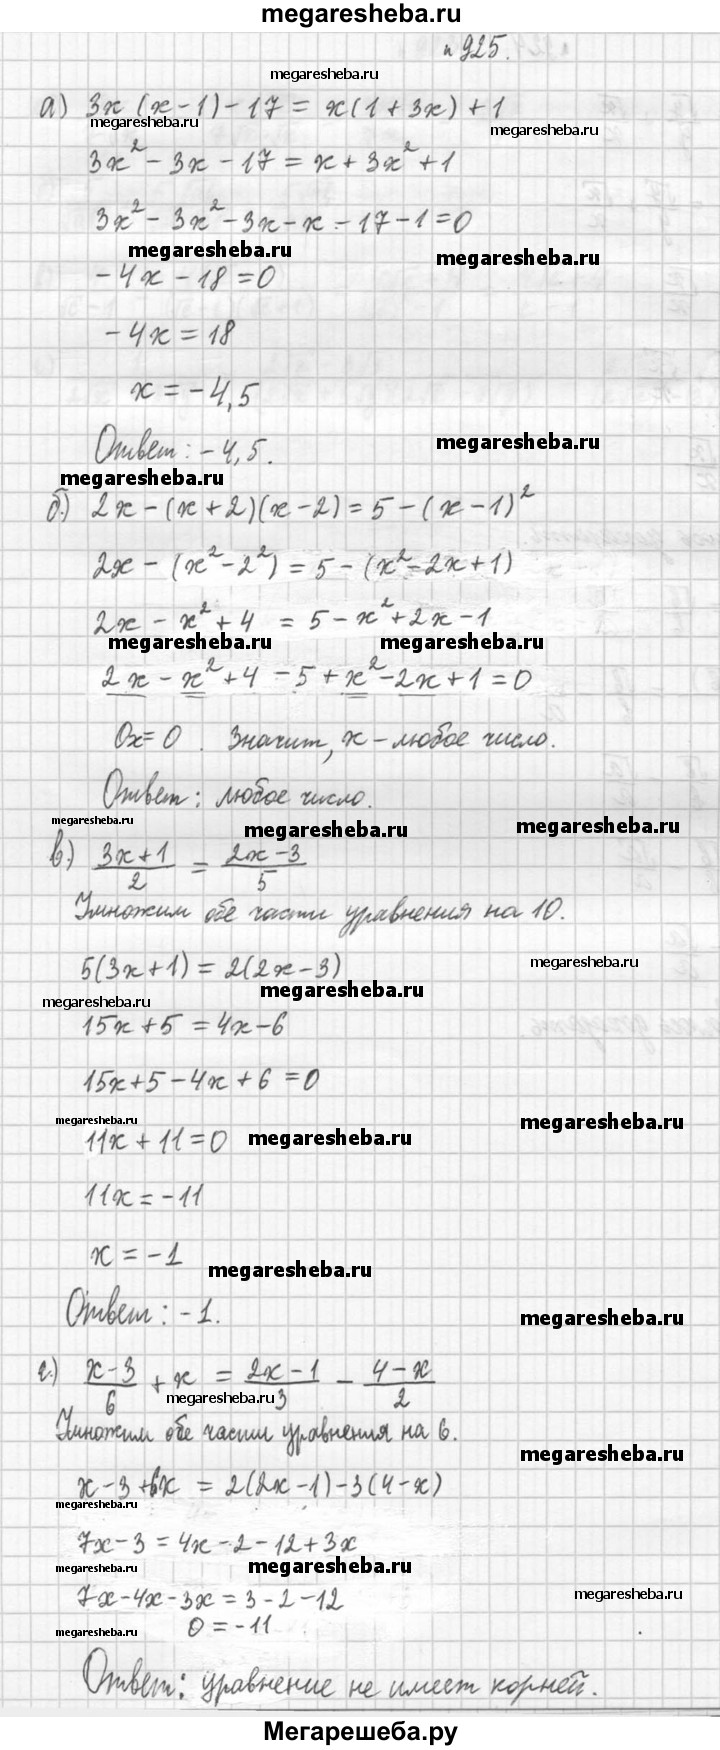 megaresheba.ru
n 925.
megaresheba.ru
а) 3x (x-1)-17 = x(1+3x)+1
megaresheba.ru
megaresheba.ru
3x² - 3x - 17 = x + 3x² + 1
3x² - 3x² - 3x - x - 17 - 1 = 0
megaresheba.ru
megaresheba.ru
-4x - 18 = 0
-4x = 18
x = -4,5
Ответ: -4,5.
megaresheba.ru
megaresheba.ru
б) 2x - (x+2)(x-2) = 5 - (x-1)²
2x - (x² - 2²) = 5 - (x² - 2x + 1)
2x - x² + 4 = 5 - x² + 2x - 1
megaresheba.ru
megaresheba.ru
2x - x² + 4 - 5 + x² - 2x + 1 = 0
0x = 0. Значит, x - любое число.
Ответ: любое число.
megaresheba.ru
megaresheba.ru
megaresheba.ru
в) (3x+1)/2 = (2x-3)/5
Умножим обе части уравнения на 10.
5(3x+1) = 2(2x-3)
megaresheba.ru
megaresheba.ru
megaresheba.ru
15x + 5 = 4x - 6
15x + 5 - 4x + 6 = 0
megaresheba.ru
megaresheba.ru
11x + 11 = 0
megaresheba.ru
11x = -11
x = -1
megaresheba.ru
Ответ: -1.
megaresheba.ru
г) (x-3)/6 + x = (2x-1)/3 - (4-x)/2
megaresheba.ru
Умножим обе части уравнения на 6.
megaresheba.ru
x - 3 + 6x = 2(2x-1) - 3(4-x)
megaresheba.ru
7x - 3 = 4x - 2 - 12 + 3x
megaresheba.ru
megaresheba.ru
7x - 4x - 3x = 3 - 2 - 12
megaresheba.ru
0 = -11
megaresheba.ru
Ответ: уравнение не имеет корней.
Мегарешеба.ру